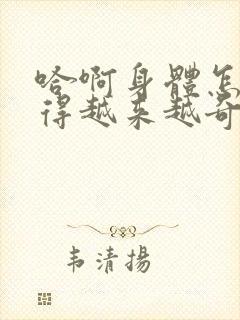 哈啊身體怎
得越来越奇
韦清揚